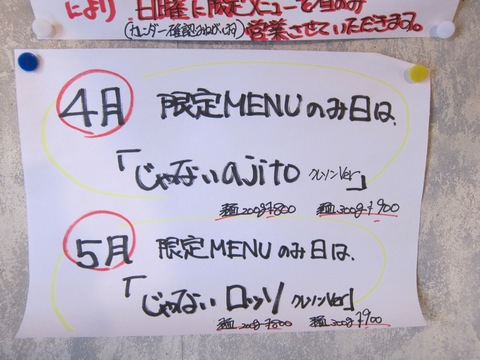 により 日曜に限定メニューを昼のみ
(カレンダー確認おねがいします) 営業させていただきます。
4月 限定MENUのみ日は、
「じゃないajito クレソンVer」
麺200g¥800 麺300g¥900
5月 限定MENUのみ日は、
「じゃない ロッソ クレソンVer」
麺200g¥800 麺300g¥900